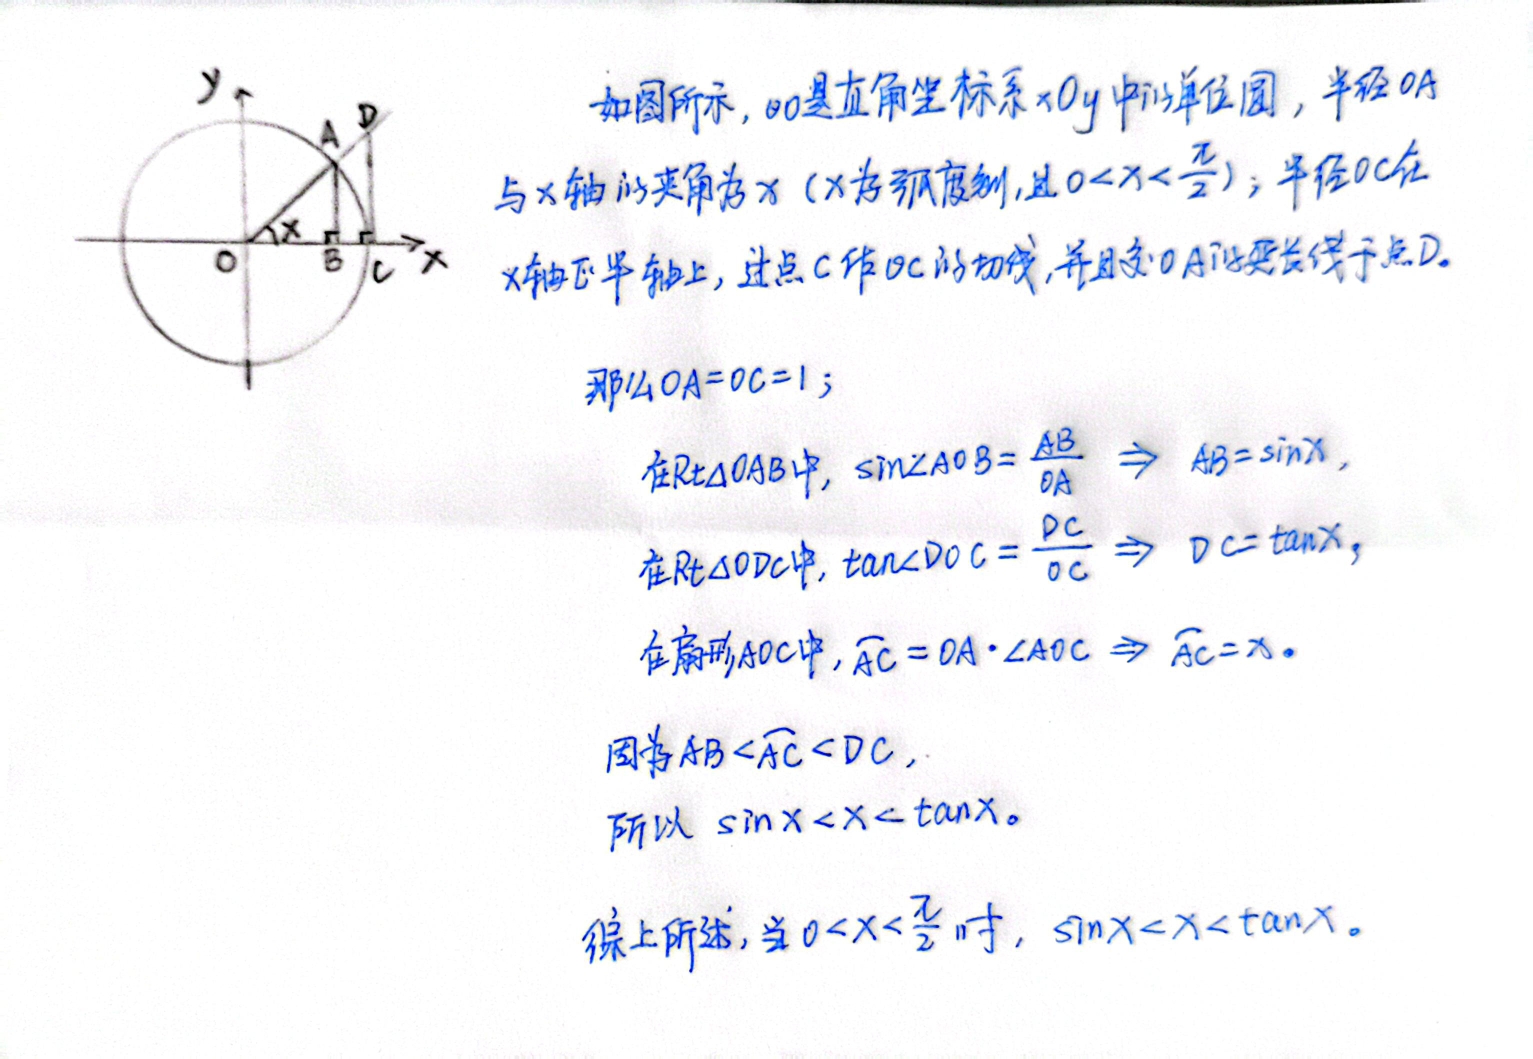 y
A D
x
O B C x
如图所示，⊙O是直角坐标系xOy中的单位圆，半径OA
与x轴的夹角为x（x为弧度制，且0<x<π/2）；半径OC在
x轴正半轴上，过点C作OC的切线，并且交OA的延长线于点D。
那么OA=OC=1；
在Rt△OAB中，sin∠AOB=AB/OA ⇒ AB=sinx，
在Rt△ODC中，tan∠DOC=DC/OC ⇒ DC=tanx，
在扇形AOC中，⌒AC=OA·∠AOC ⇒ ⌒AC=x。
因为AB<⌒AC<DC，
所以 sinx<x<tanx。
综上所述，当0<x<π/2时，sinx<x<tanx。